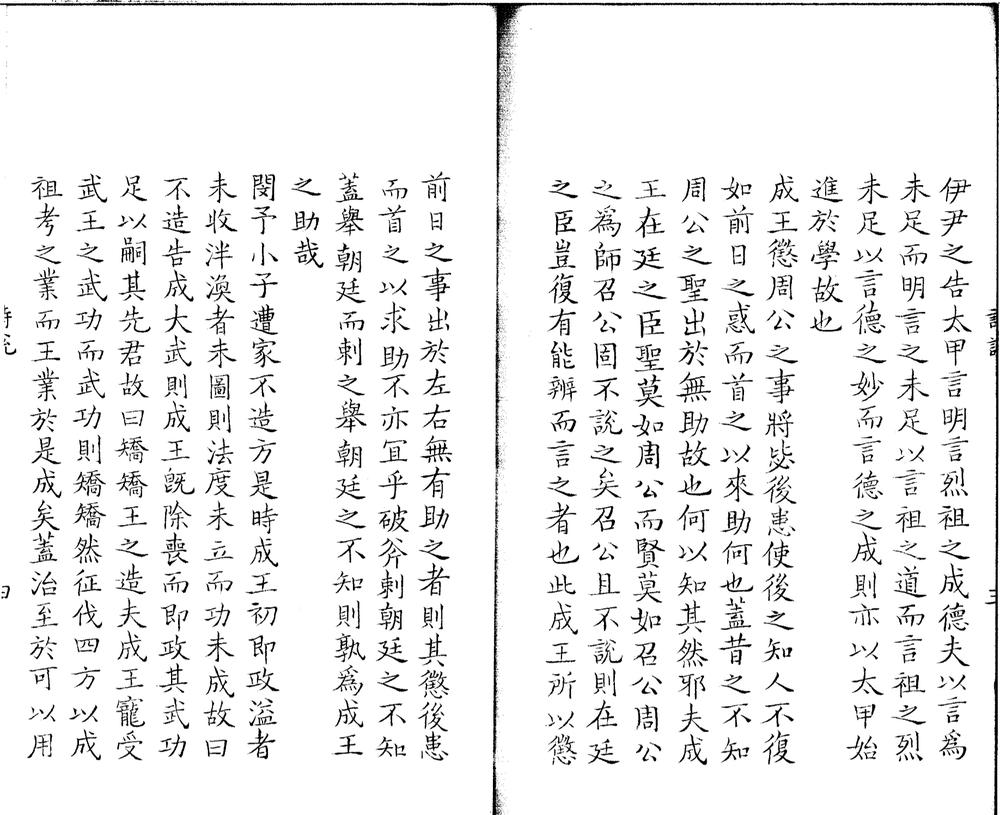 伊尹之告太甲言明言烈祖之成德夫以言為
未足而明言之未足以言祖之道而言祖之烈
未足以言德之妙而言德之成則亦以太甲始
進於學故也
成王懲周公之事將毖後患使後之知人不復
如前日之惑而首之以來助何也蓋昔之不知
周公之聖出於無助故也何以知其然邪夫成
王在廷之臣聖莫如周公而賢莫如召公周公
之為師召公固不說之矣召公且不說則在廷
之臣豈復有能辨而言之者也此成王所以懲
前日之事出於左右無有助之者則其懲後患
而首之以求助不亦宜乎破斧刺朝廷之不知
蓋舉朝廷而刺之舉朝廷之不知則孰為成王
之助哉
閔予小子遭家不造方是時成王初即政溢者
未收泮渙者未圖則法度未立而功未成故曰
不造告成大武則成王既除喪而即政其武功
足以嗣其先君故曰矯矯王之造夫成王寵受
武王之武功而武功則矯矯然征伐四方以成
祖考之業而王業於是成矣蓋治至於可以用